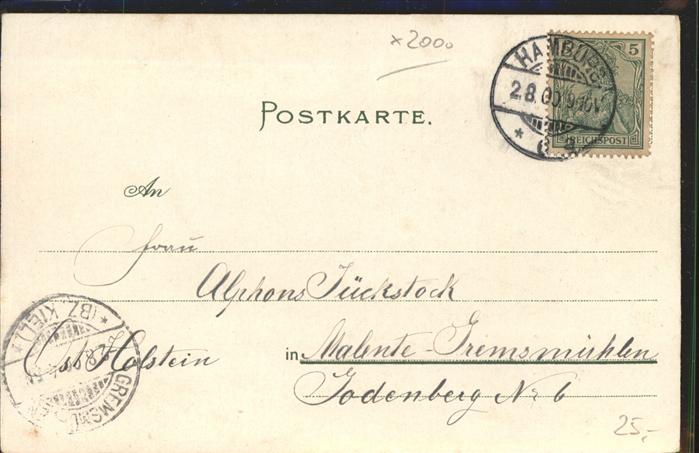 x2000
POSTKARTE.
5
REICHSPOST
HAMBURG
2.8.00.9-10V
*
An
Frau
Alphons Tückstock
Ost Holstein in Malente-Gremsmühlen
Godenberg Nr 6
*(BZ. KIEL)*
GREMSM
25,-